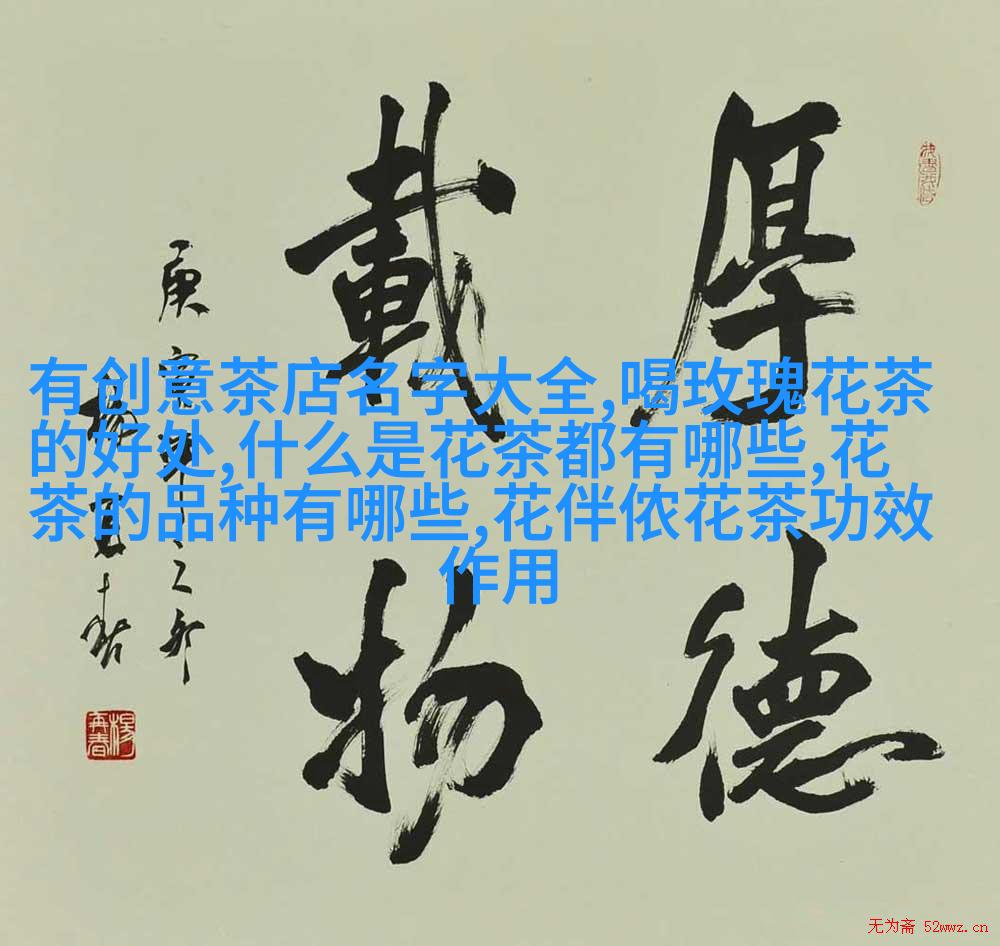 厚德
載物
庚寅年之卯
楊再春
有创意茶店名字大全,喝玫瑰花茶
的好处,什么是花茶都有哪些,花
茶的品种有哪些,花伴侬花茶功效
作用
楊再春
无为斋 52wwz.cn